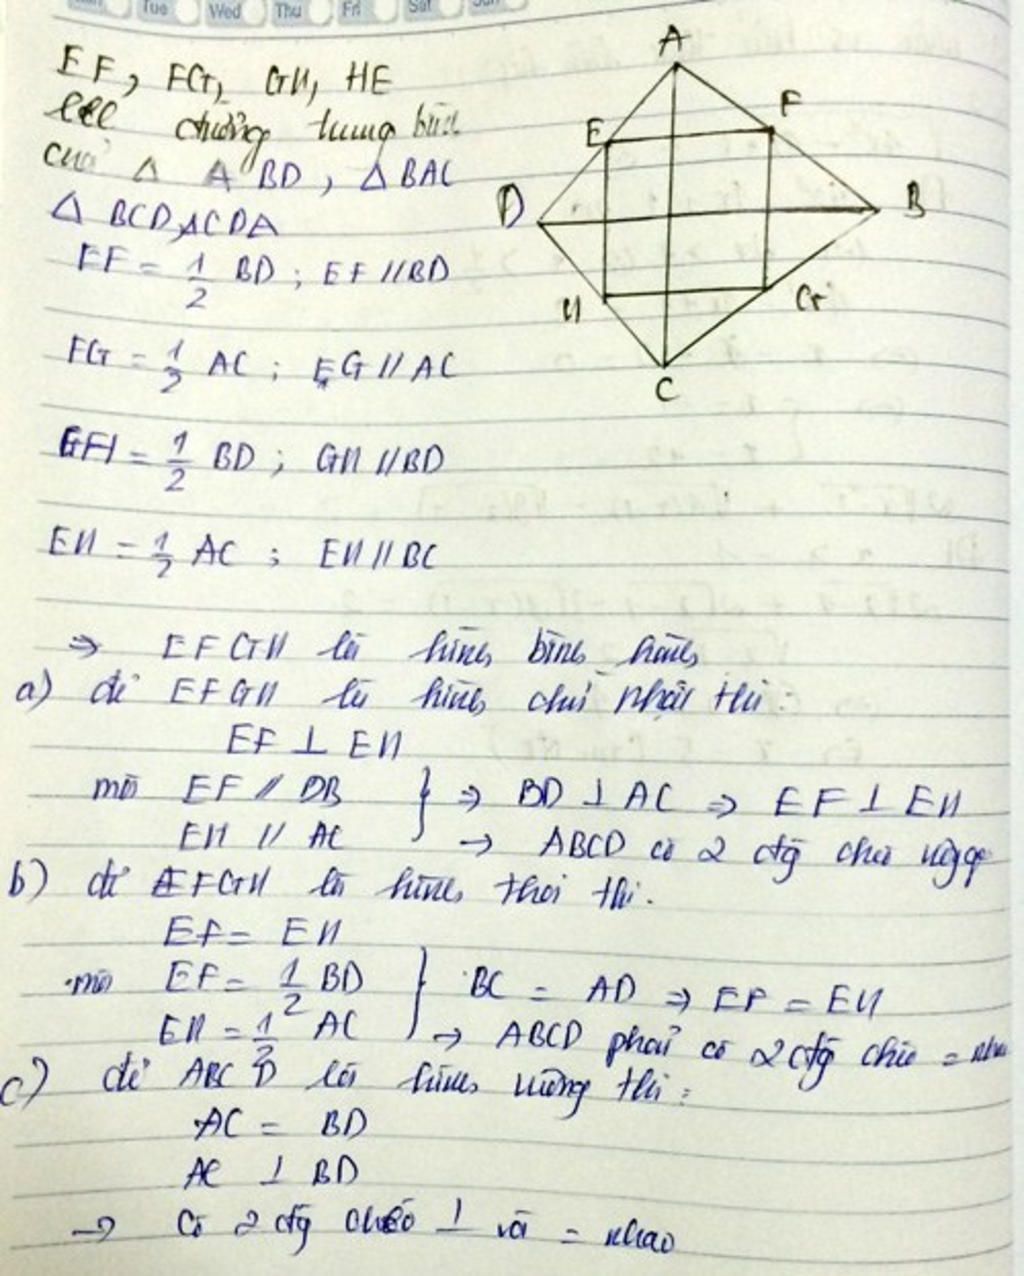 Tue Wed Thu Fri Sat Sun
EF, FG, GH, HE
là đường trung bình
của △ ABD, △ BAC
△ BCD, ACDA
EF = 1/2 BD ; EF // BD
FG = 1/2 AC ; FG // AC
GH = 1/2 BD ; GH // BD
EH = 1/2 AC ; EH // BC
⇒ EFGH là hình bình hành
a) để EFGH là hình chữ nhật thì :
EF ⊥ EH
mà EF // DB } ⇒ BD ⊥ AC ⇒ EF ⊥ EH
EH // AC → ABCD có 2 đg chéo
b) để EFGH là hình thoi thì.
EF = EH
mà EF = 1/2 BD } BC = AD ⇒ EF = EH
EH = 1/2 AC → ABCD phải có 2 đg chéo = nhau
c) để ABCD là hình vuông thì :
AC = BD
AC ⊥ BD
→ Có 2 đg chéo ⊥ và = nhau
A
E F
D B
H G
C